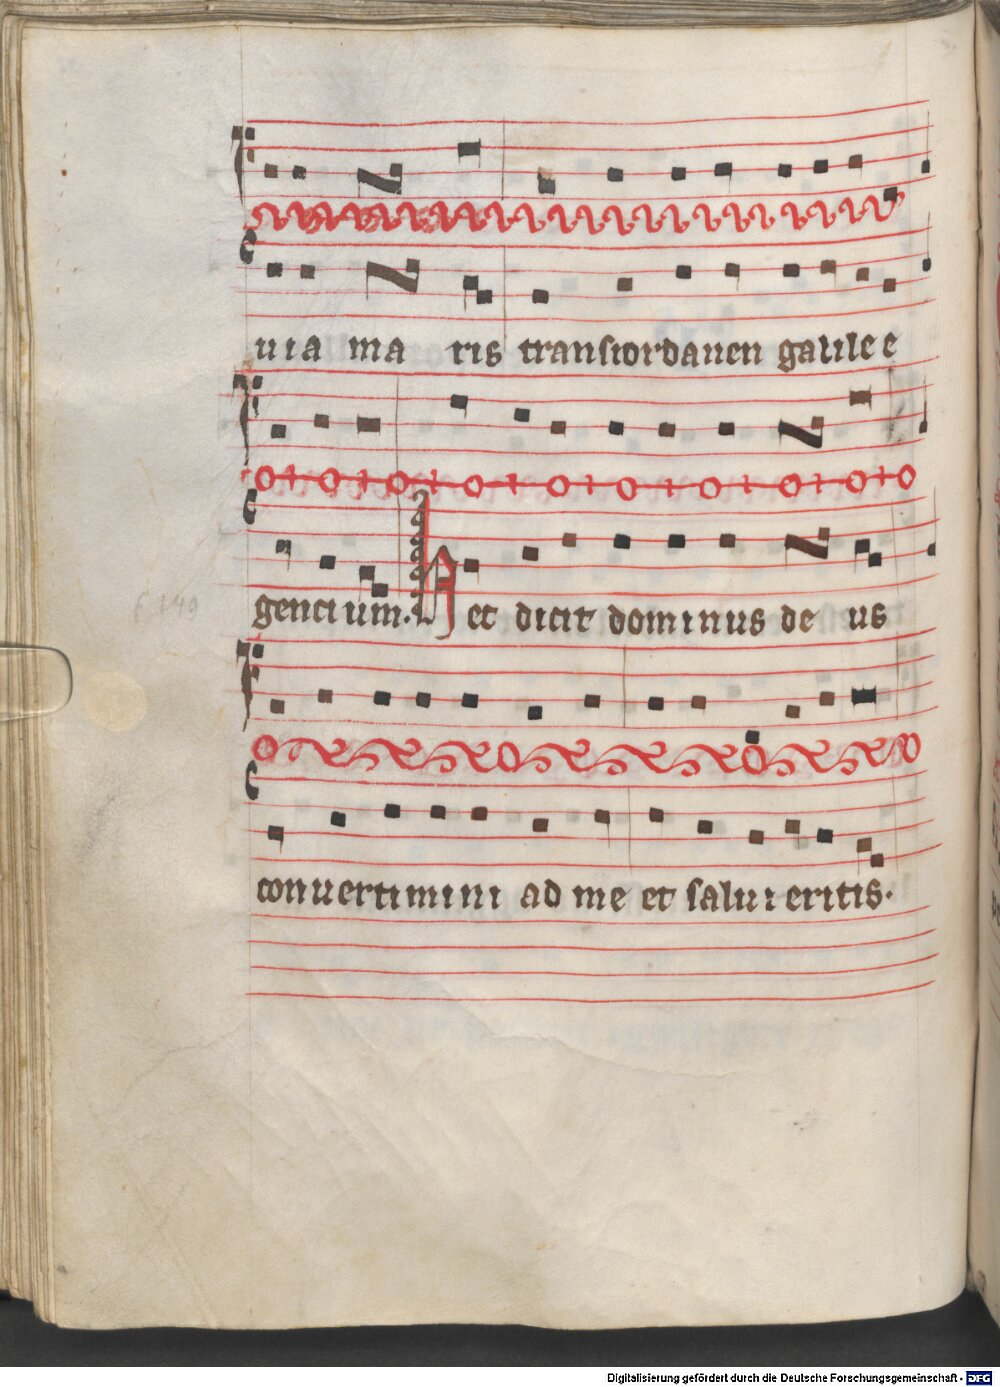 uia maris transiordanen galilee
gencium. Hec dicit dominus deus
conuertimini ad me et salui eritis.
f. 140
Digitalisierung gefördert durch die Deutsche Forschungsgemeinschaft - DFG